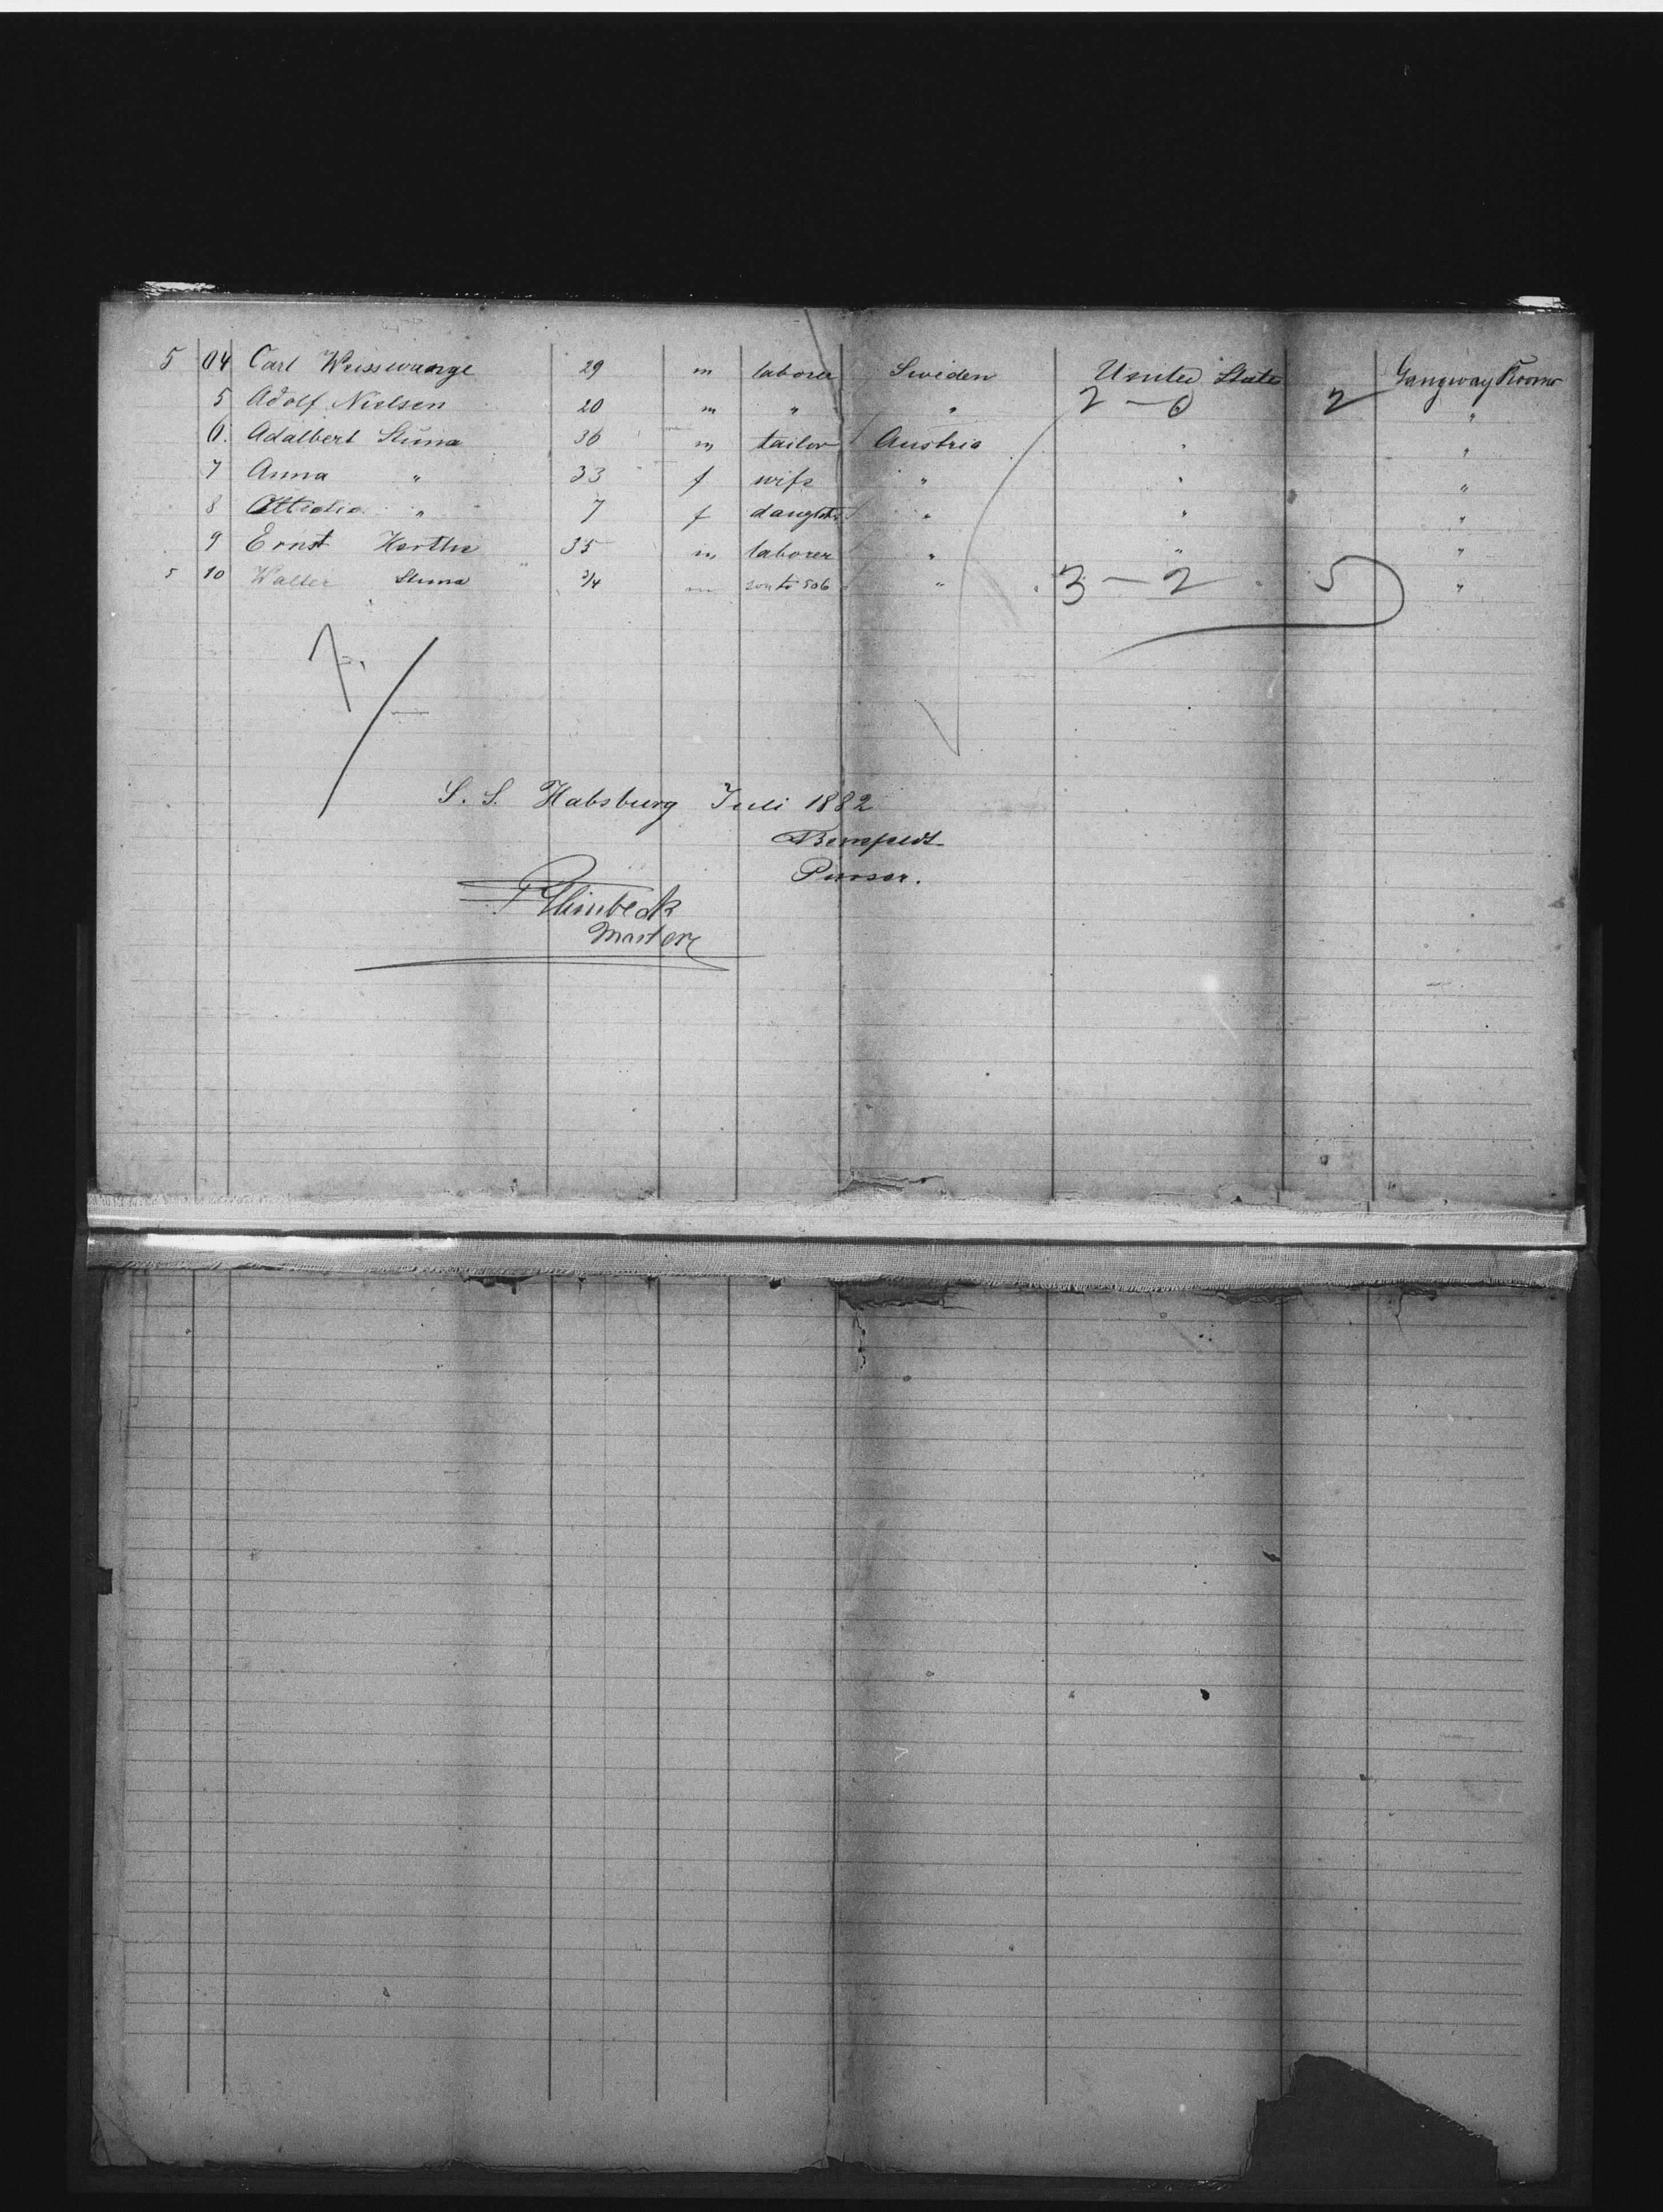 5 04 Carl Weisswange 29 m laborer Sweden United States Gangway Rooms
5 Adolf Nielsen 20 m " " 2 – 0 2 "
6. Adalbert Sluma 36 m tailor Austria " "
7 Anna " 33 f wife " " "
8 " 7 f daughter " " "
9 Ernst 35 m laborer " " "
5 10 Walter Sluma 3/4 m son to 506 " 3 – 2 5 "
7
S. S. Habsburg Juli 1882
Purser.
Master